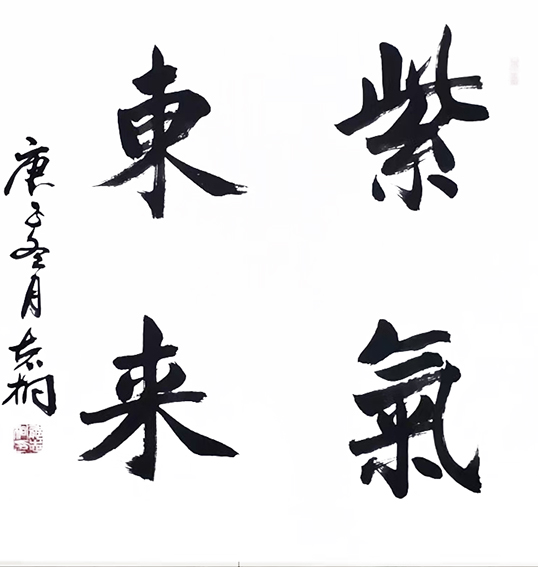 紫氣
東来
庚子冬月志桐